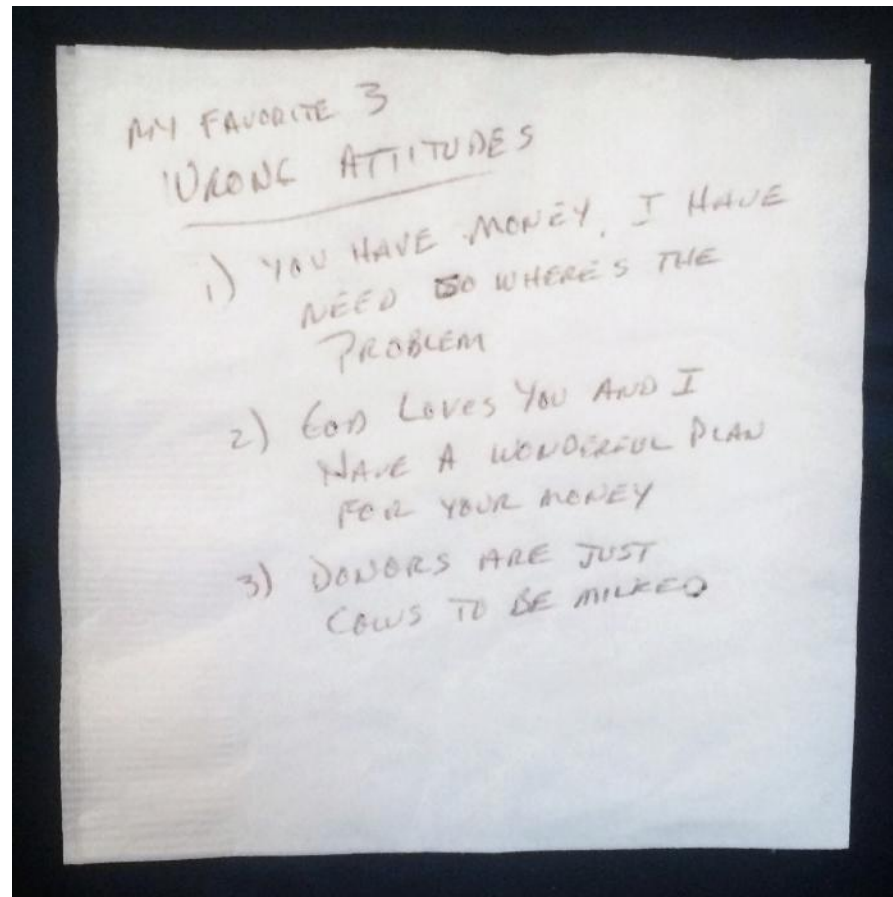 MY FAVORITE 3
WRONG ATTITUDES
1) YOU HAVE MONEY, I HAVE
NEED SO WHERE'S THE
PROBLEM
2) GOD LOVES YOU AND I
HAVE A WONDERFUL PLAN
FOR YOUR MONEY
3) DONORS ARE JUST
COWS TO BE MILKED